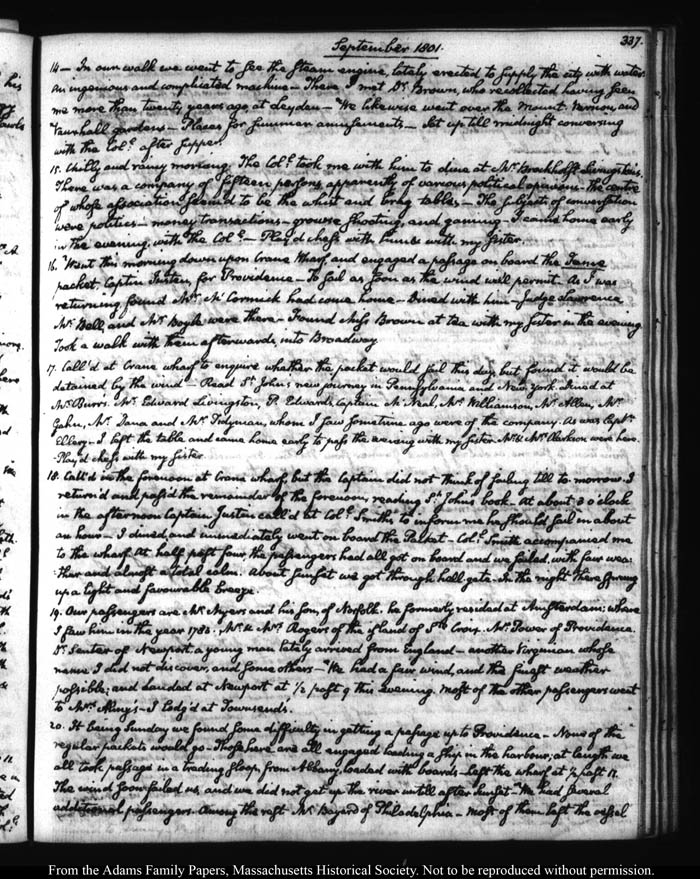 337.
September 1801.
14 — In our walk we went to see the steam engine, lately erected to supply the city with water.
An ingenious and complicated machine — There I met Dr. Brown, who recollected having seen
me more than twenty years ago at Leyden — We likewise went over the Mount Vernon, and
Vauxhall gardens — Places for summer amusements — Sat up till midnight conversing
with the Col.l after supper.
15. Chilly and rainy morning. The Col.l took me with him to dine at Mr. Brockholst Livingston's.
There was a company of fifteen persons, apparently of various political opinions — the centre
of whose association seem'd to be the whist and brag tables — The subjects of conversation
were politics — money transactions — grouse shooting, and gaming — I came home early
in the evening, with the Col.l — Play'd chess with him & with my Sister.
16. Went this morning down upon Crane Wharf, and engaged a passage on board the Fame
packet, Captn. Justin, for Providence — To sail as soon as the wind will permit. As I was
returning, found Mr. McCormick had come home — Dined with him — Judge Lawrence
Mr. Bell, and Mr. Boyle were there — Found Miss Brown at tea with my Sister in the evening
Took a walk with them afterwards, into Broadway.
17. Call'd at Crane wharf to enquire whether the packet would sail this day, but found it would be
detained by the wind — Read St. John's new journey in Pennsylvania and New York. Dined at
Mr. Burr's. Mr. Edward Livingston, P. Edwards, Captain McNeal, Mr. Williamson, Mr. Allen, Mr.
Gahn, Mr. Dana and Mr. Tidyman, whom I saw sometime ago were of the company. As was Captn.
Ellery. I left the table and came home early to pass the evening with my Sister. Mr. & Mrs. Clarkson were here.
Play'd chess with my Sister
18. Call'd in the forenoon at Crane wharf, but the Captain did not think of sailing till to-morrow. I
return'd and pass'd the remainder of the forenoon, reading St. John's book — At about 3 o'clock
in the afternoon Captain Justin call'd at Col.l Smith's to inform me he should sail in about
an hour — I dined, and immediately went on board the Packet — Col.l Smith accompanied me
to the wharf. At half past four the passengers had all got on board and we sailed, with fair wea-
ther and almost a total calm. About sunset we got through hell gate. In the night there sprung
up a light and favourable breeze.
19. Our passengers are Mr. Myers and his son, of Norfolk. he formerly resided at Amsterdam; where
I saw him in the year 1780. Mr. & Mrs. Rogers of the island of Sta. Croix. Mr. Power of Providence.
Dr. Senter of Newport, a young man lately arrived from England — another Virginian whose
name I did not discover, and some others — We had a fair wind, and the finest weather
possible; and landed at Newport at 1/2 past 9 this evening. Most of the other passengers went
to Mrs. — I lodg'd at Townsends.
20. It being Sunday we found some difficulty in getting a passage up to Providence — None of the
regular packets would go — Those here are all engaged loading a ship in the harbour; at length we
all took passage in a trading sloop, from Albany, loaded with boards — Left the wharf at 1/2 past
The wind soon failed us, and we did not get up the river untill after sunset — We had several
additional passengers — Among the rest Mr. Bayard of Philadelphia — Most of them left the vessel
From the Adams Family Papers, Massachusetts Historical Society. Not to be reproduced without permission.